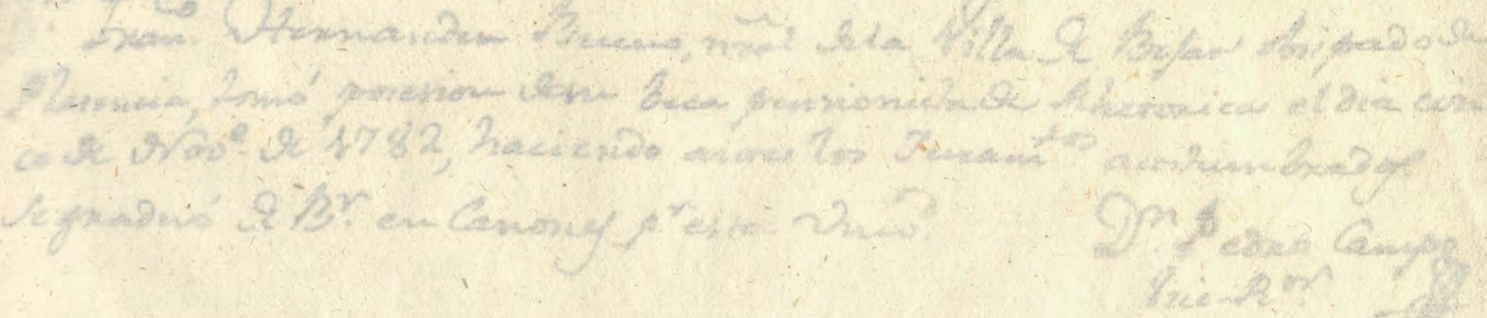 Franco Hernandez Bueno, nral de la Villa de Bejar Obispado de
Plasencia, tomó posesion de su beca pensionada de Rhetorica el dia cin
co de Nove. de 1782, haciendo los Juramtos acostumbrados
se graduó de Br. en Canones pr esta Univd.
Dn Pedro Campo
Vice-Ror